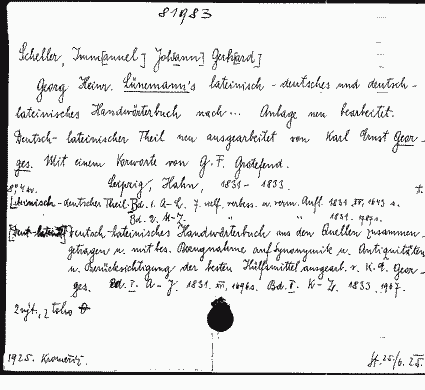 81983
Scheller, Imm[anuel] Joh[ann] Gerh[ard]
Georg Heinr. Lünemann's lateinisch - deutsches und deutsch-
lateinisches Handwörterbuch nach ... Anlage neu bearbeitet.
Deutsch-lateinischer Theil neu ausgearbeitet von Karl Ernst Geor-
ges. Mit einem Vorworte von G. F. Grotefend.
Leipzig, Hahn, 1831 - 1833.
[Lateinisch-deutscher Theil] Bd. 1. A-L. 7. verbess. u. verm. Aufl. 1831. 1643 s.
Bd. 2. M-Z. " " 1831.
[Deut-latein] Deutsch-lateinisches Handwörterbuch aus den Quellen zusammen-
getragen u. mit bes. Bezugnahme auf Synonymik u. Antiquitäten
u. Berücksichtigung der besten Hülfsmittel ausgearb. v. K. E. Geor-
ges. Bd. I. A-J. 1831. 1696 s. Bd. II. K-Z. 1833.
1925.